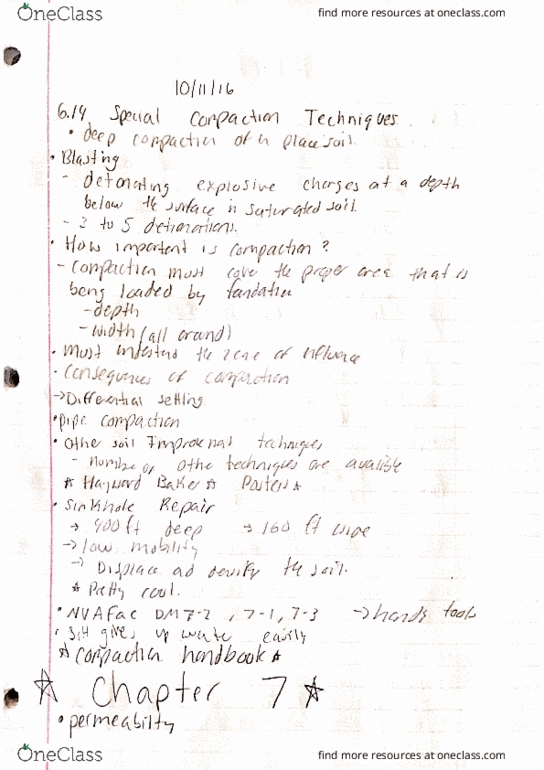 OneClass
find more resources at oneclass.com
10/11/16
6.14 Special Compaction Techniques
• deep compaction of in place soil.
• Blasting
- detonating explosive charges at a depth
below the surface in saturated soil.
- 3 to 5 detonations.
• How important is compaction?
- Compaction must cove the proper area that is
being loaded by fondation
- depth
- width (all around)
• must understand the zone of influence
• Consequences of compaction
→ Differential settling
• pipe compaction
• Other soil Improvement techniques
- number of othe techniques are avalible
☆ Hayward Baker ☆ Posters ☆
• Sinkhole Repair
→ 400 ft deep → 160 ft wide
→ low mobility
→ Displace ad densify the soil.
☆ Pretty cool.
• NVAFAC DM7-2, 7-1, 7-3 → hands tools
• Silt gives up wate easily
☆ compaction handbook ☆
☆ Chapter 7 ☆
• permeabilty
OneClass
find more resources at oneclass.com